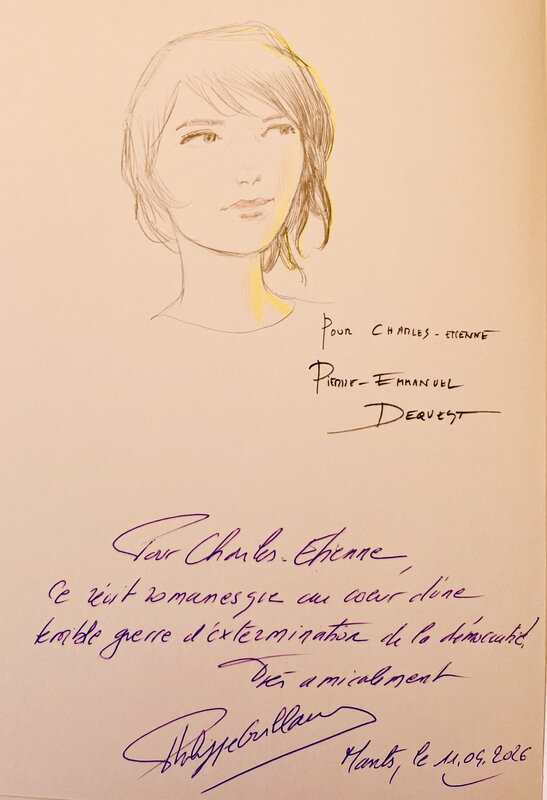 Pour Charles-Etienne
Pierre-Emmanuel
Dequest
Pour Charles-Etienne,
Ce récit romanesque au coeur d'une
terrible guerre d'extermination de la démocratie,
Très amicalement
Philippe Guillaume
Nants, le 11.04.2026